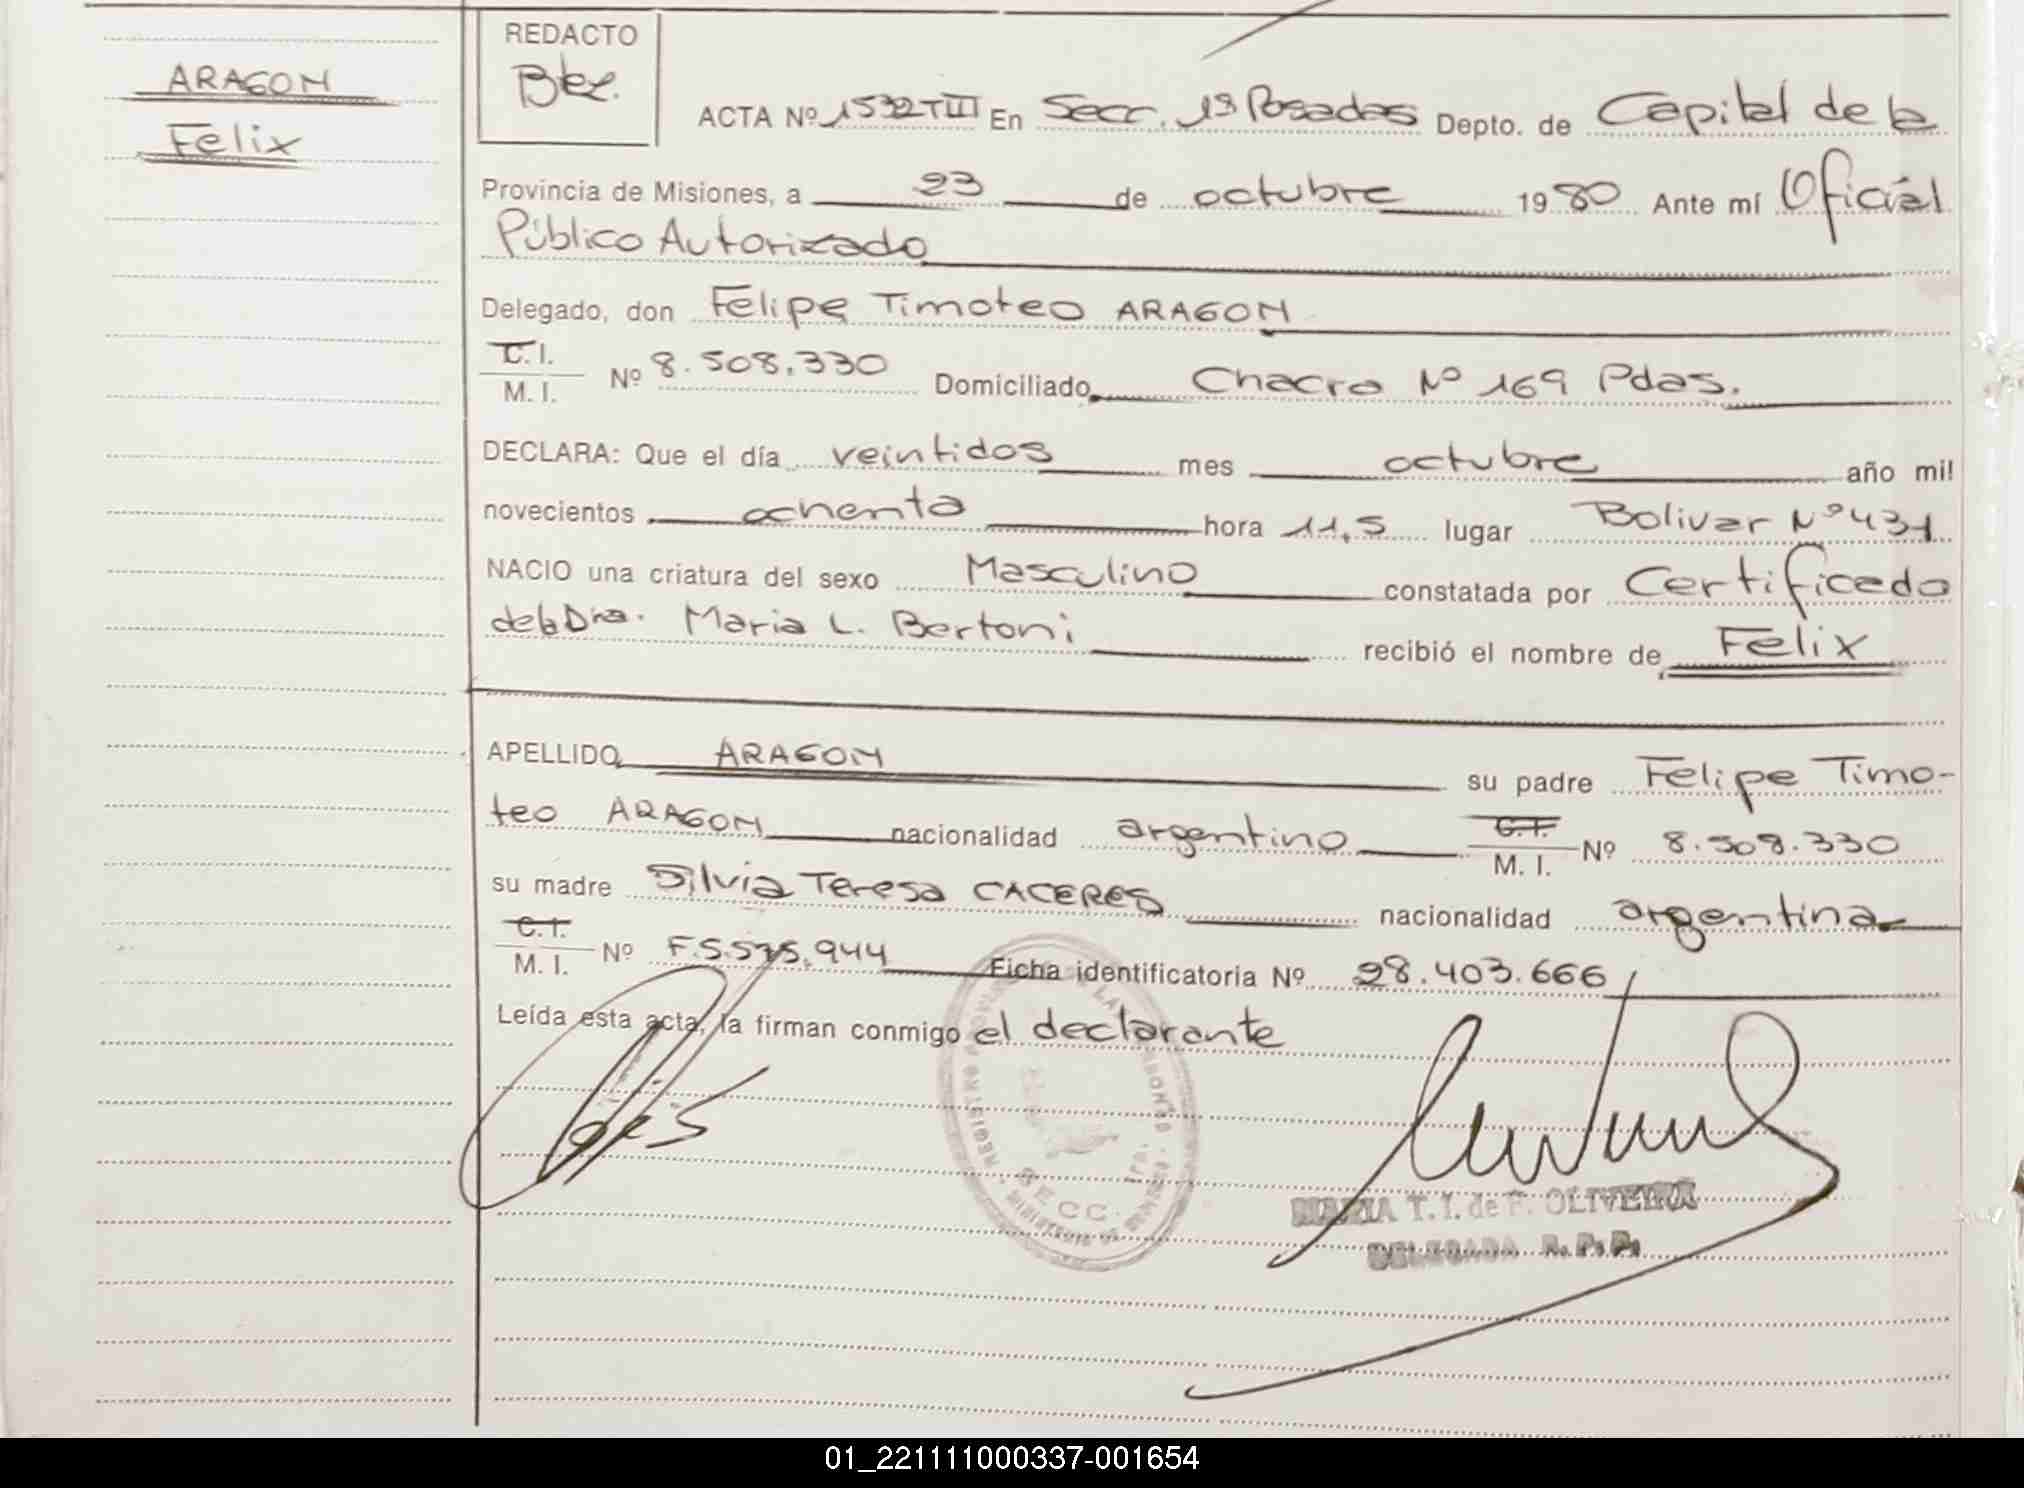 ARAGON
Felix
REDACTO
ACTA Nº 1532TIII En Secc. 1ª Posadas Depto. de Capital de la
Provincia de Misiones, a 23 de octubre 1980 Ante mí Oficial
Público Autorizado
Delegado, don Felipe Timoteo ARAGON
C.I.
M. I. Nº 8.508.330 Domiciliado Chacra Nº 169 Pdas.
DECLARA: Que el día veintidos mes octubre año mil
novecientos ochenta hora 11,5 lugar Bolivar Nº 431
NACIO una criatura del sexo Masculino constatada por Certificado
de la Dra. Maria L. Bertoni recibió el nombre de Felix
APELLIDO ARAGON su padre Felipe Timo-
teo ARAGON nacionalidad argentino C.I. M. I. Nº 8.508.330
su madre Silvia Teresa CACERES nacionalidad argentina
C.I.
M. I. Nº F.5.575.944 Ficha identificatoria Nº 28.403.666
Leída esta acta, la firman conmigo el declarante
MARIA T. I. de F. OLIVEIRA
DELEGADA R. P. P.
01_221111000337-001654